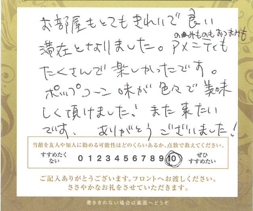 お部屋もとてもきれいで良い
のみものもありまたも
滞在となりました。アメニティも
たくさんで楽しかったです。
ポップコーン味が色々で美味
しく頂けました! また来たい
です。ありがとうございました!
当館を友人や知人に勧める可能性はどのくらいあるか、点数で教えてください。
すすめたくない 0 1 2 3 4 5 6 7 8 9 10 ぜひすすめたい
ご記入ありがとうございます。フロントへお渡しください。
ささやかなお礼をさせていただきます。